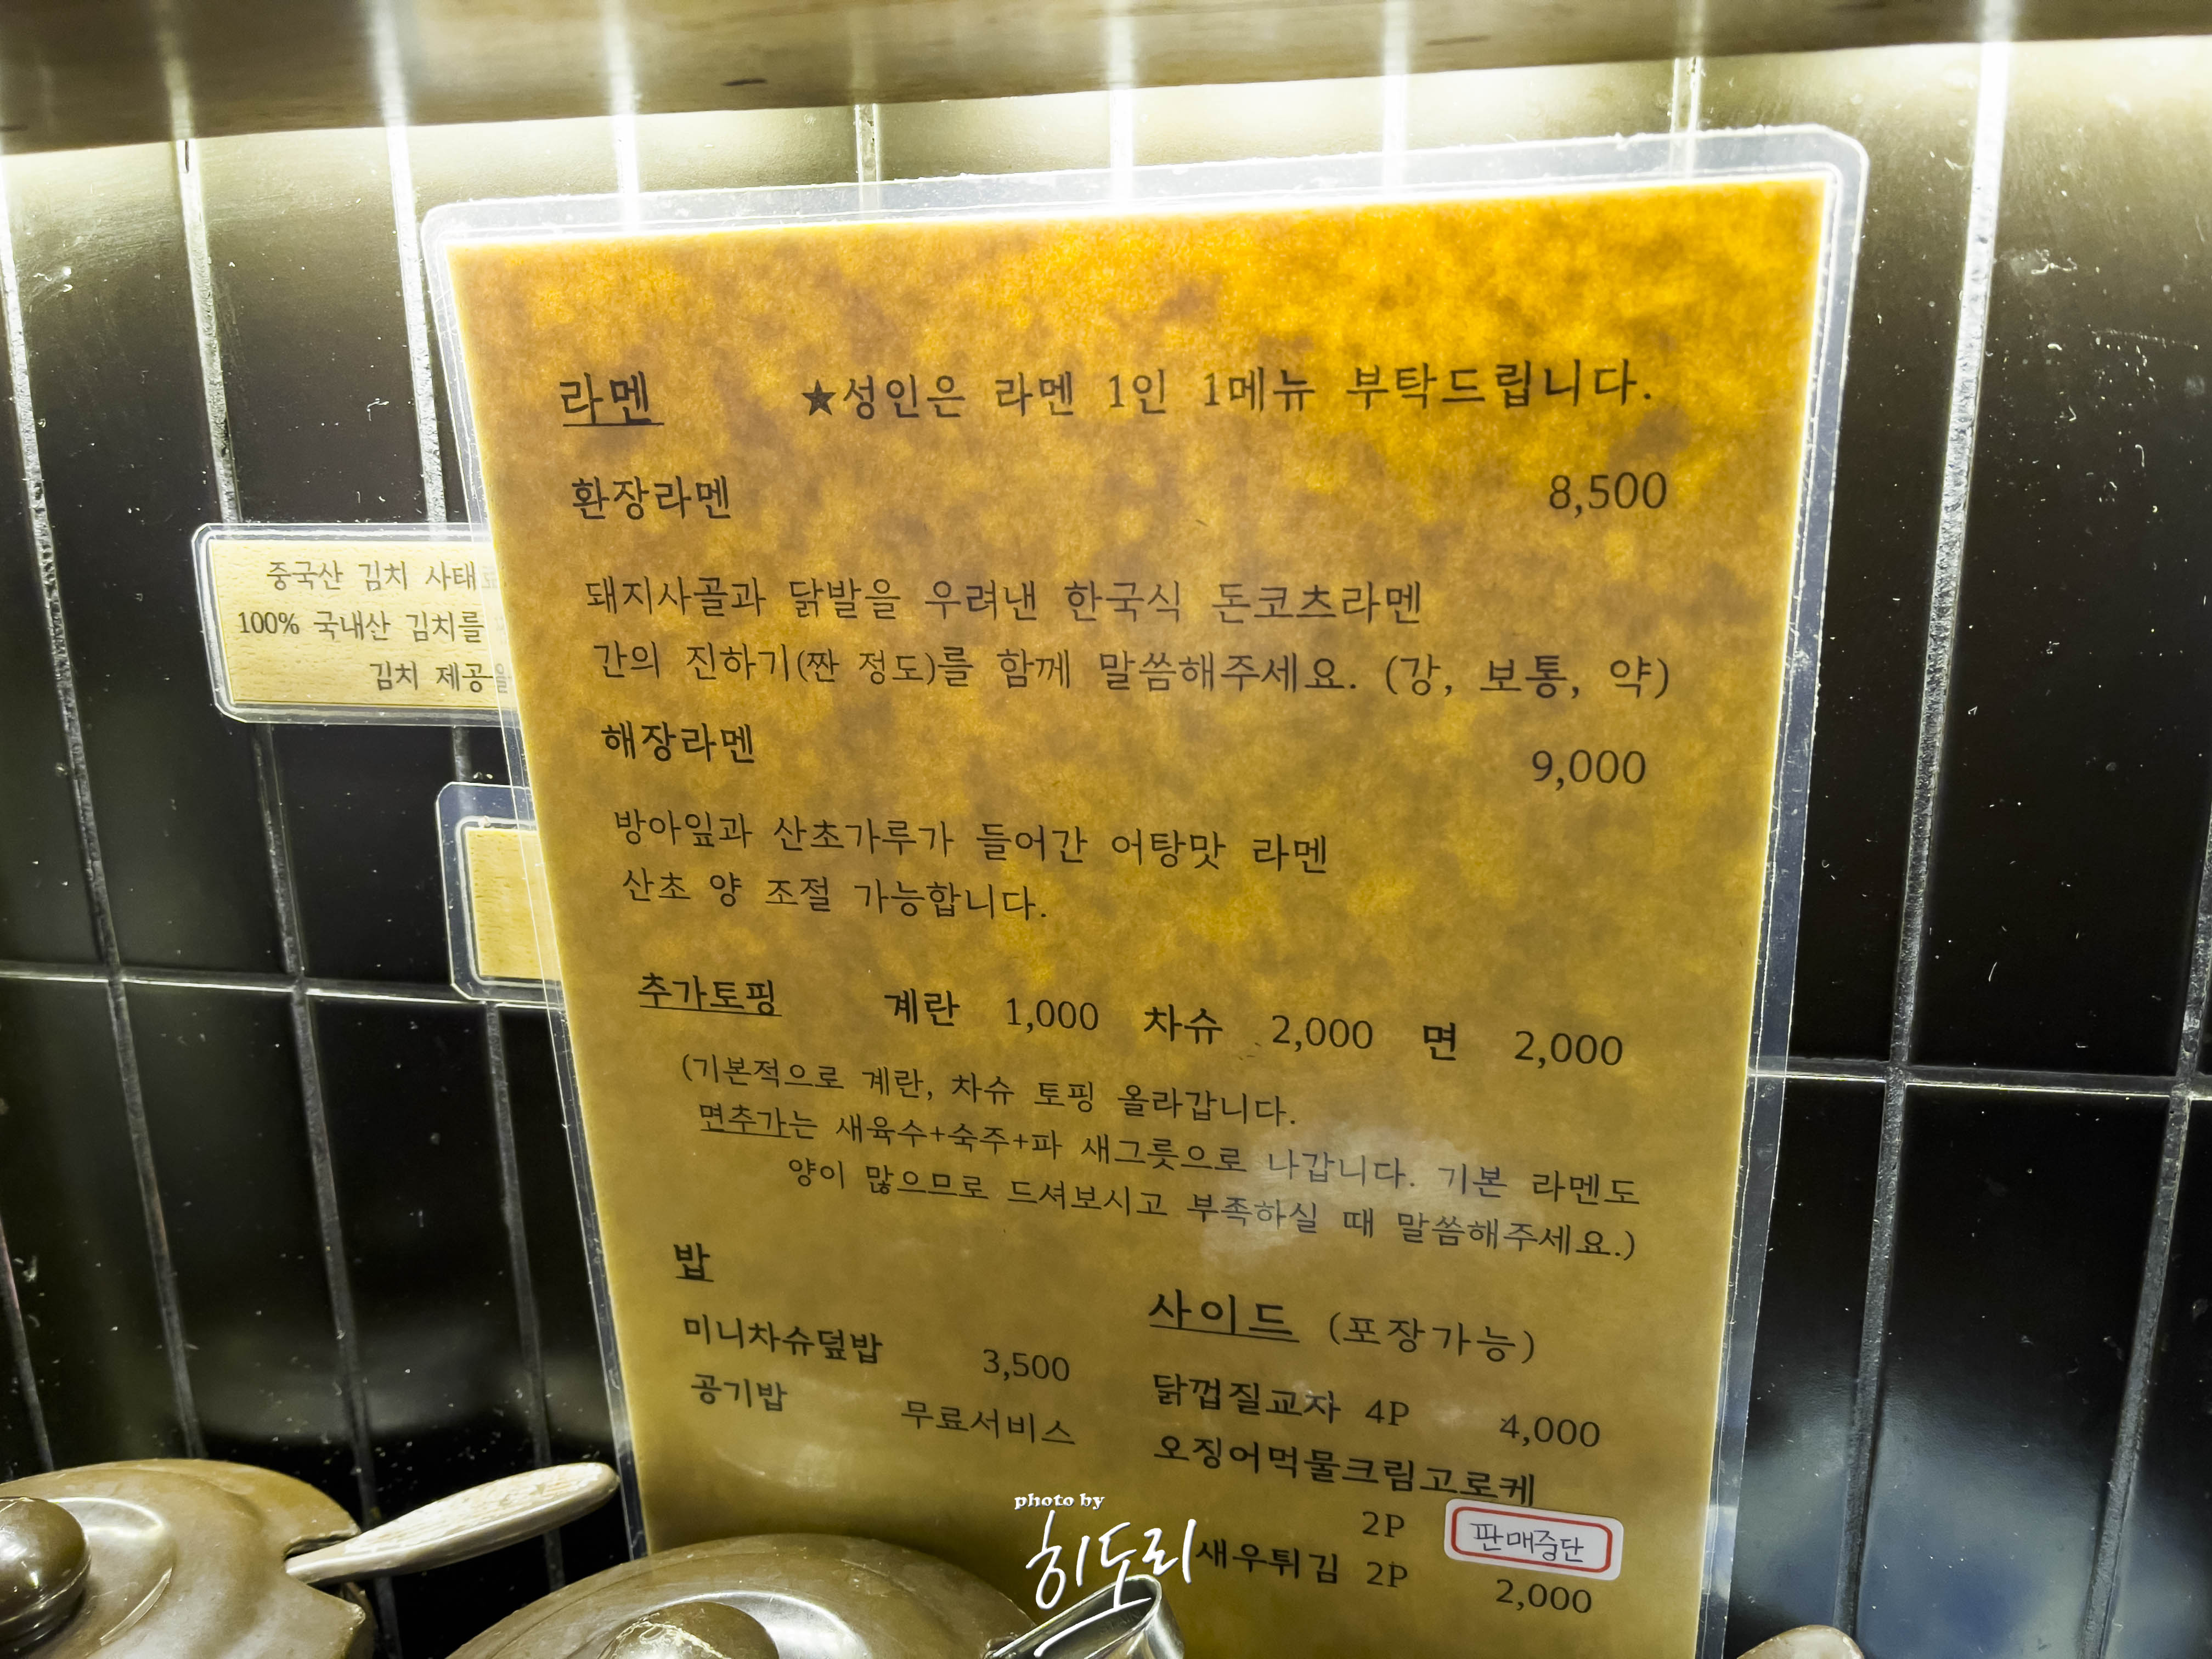 라멘 ★성인은 라멘 1인 1메뉴 부탁드립니다.
환장라멘 8,500
돼지사골과 닭발을 우려낸 한국식 돈코츠라멘
간의 진하기(짠 정도)를 함께 말씀해주세요. (강, 보통, 약)
해장라멘 9,000
방아잎과 산초가루가 들어간 어탕맛 라멘
산초 양 조절 가능합니다.
추가토핑 계란 1,000 차슈 2,000 면 2,000
(기본적으로 계란, 차슈 토핑 올라갑니다.
면추가는 새육수+숙주+파 새그릇으로 나갑니다. 기본 라멘도
양이 많으므로 드셔보시고 부족하실 때 말씀해주세요.)
밥
미니차슈덮밥 3,500
공기밥 무료서비스
사이드 (포장가능)
닭껍질교자 4P 4,000
오징어먹물크림고로케
2P 판매중단
새우튀김 2P 2,000
중국산 김치 사태
100% 국내산 김치를
김치 제공을
photo by
히도리